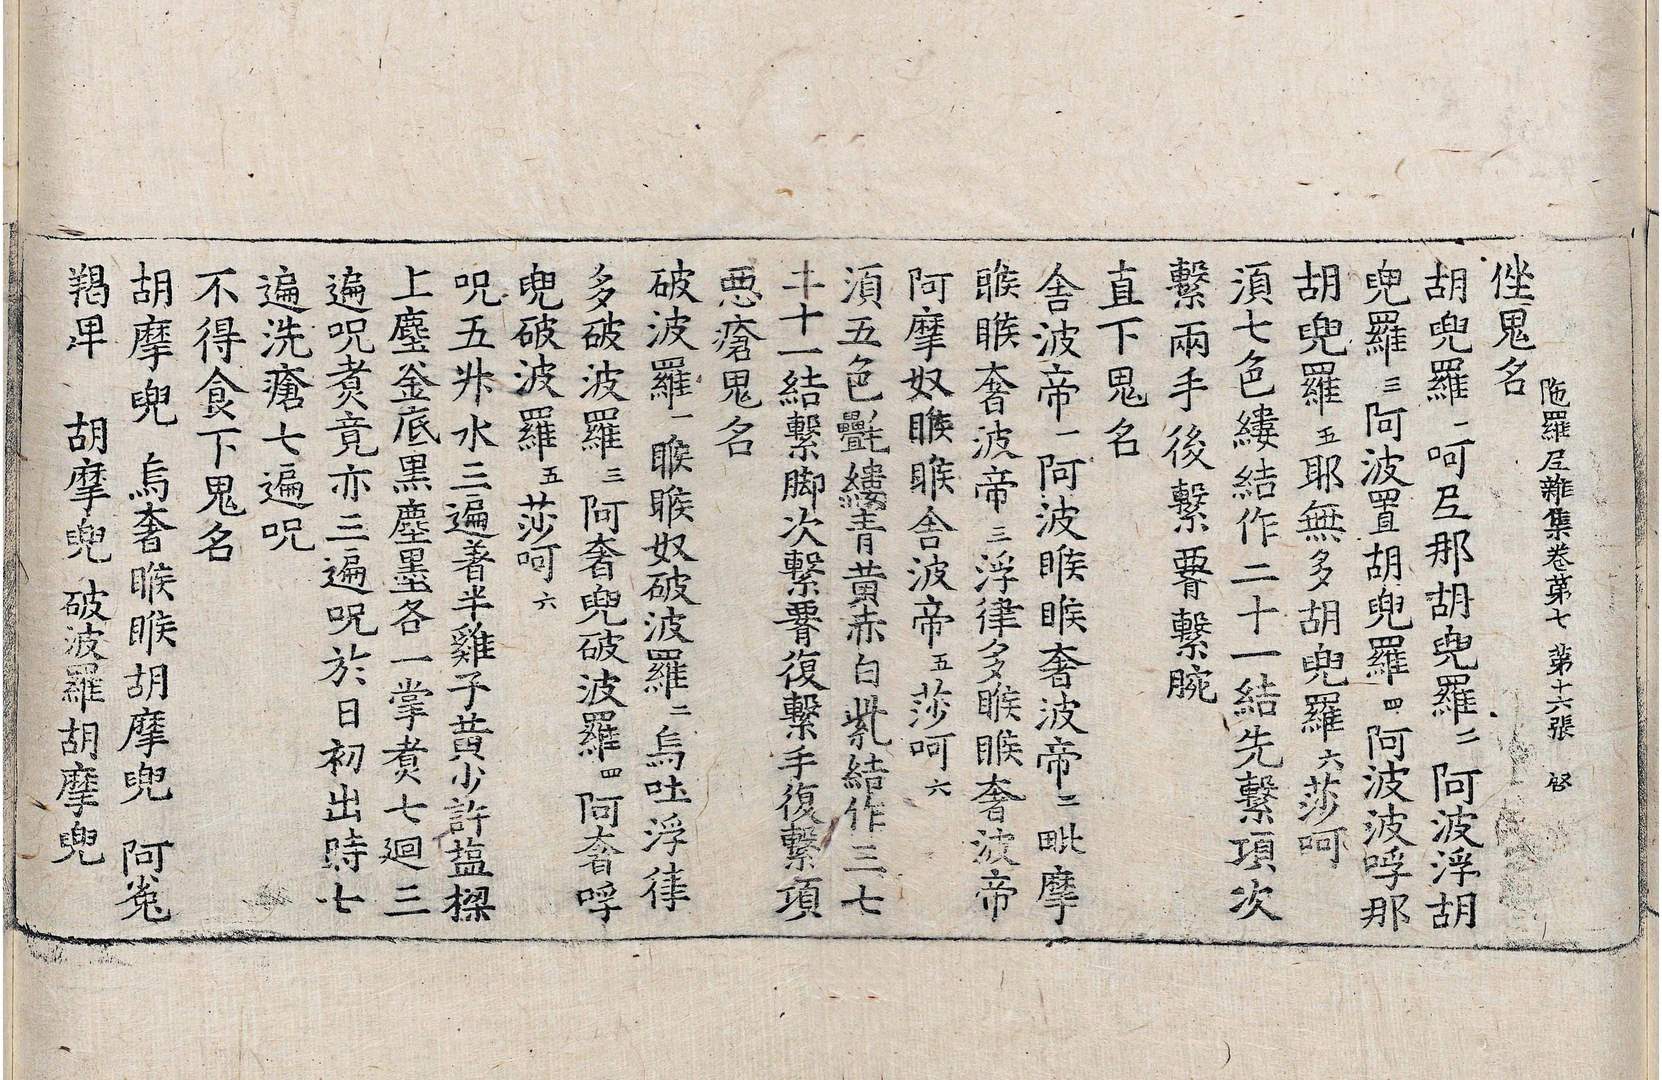 陁羅尼雜集卷第七 第十六張 啓
㘴鬼名
胡兜羅一呵尼那胡兜羅二阿波浮胡
兜羅三阿波置胡兜羅四阿波波呼那
胡兜羅五耶無多胡兜羅六莎呵
須七色縷結作二十一結先繫項次
繫兩手後繫䂓繫腕
直下鬼名
舍波帝一阿波睺睺奢波帝二毗摩
睺睺奢波帝三浮律多睺睺奢波帝
阿摩奴睺睺舍波帝五莎呵六
須五色氎縷青黃赤白紫結作三七
二十一結繫脚次繫腰復繫手復繫項
悪瘡鬼名
破波羅一睺睺奴破波羅二烏吐浮律
多破波羅三阿奢兜破波羅四阿奢呼
兜破波羅五莎呵六
呪五升水三遍著半雞子黃少許塩樑
上塵釜底黑塵墨各一掌煮七迴三
遍呪煮竟亦三遍呪於日初出時七
遍洗瘡七遍呪
不得食下鬼名
胡摩兜 烏奢睺睺胡摩兜 阿㝹
羯卑 胡摩兜 破波羅胡摩兜